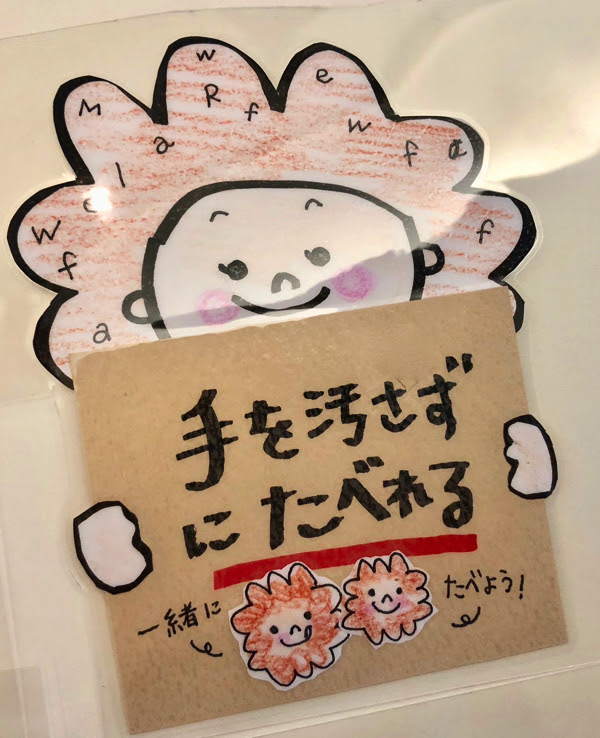 手を汚さず
にたべれる
一緒に
たべよう!